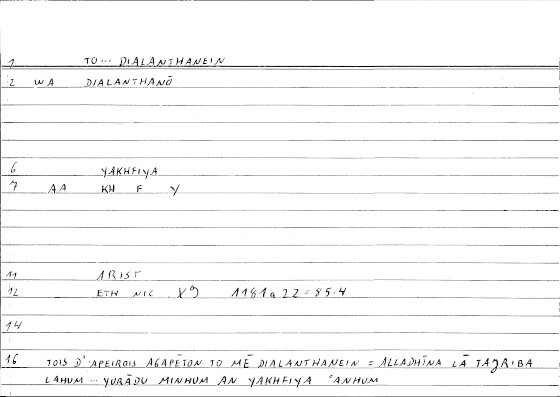 1 TO... DIALANTHANEIN
2 WA DIALANTHANŌ
6 YAKHFIYA
7 AA KH F Y
11 ARIST
12 ETH NIC 1181a22 = 85.4
14
16 TOIS D' APEIROIS AGAPĒTON TO MĒ DIALANTHANEIN = ALLADHĪNA LĀ TAJRIBA
LAHUM ... YURĀDU MINHUM AN YAKHFIYA ʿANHUM